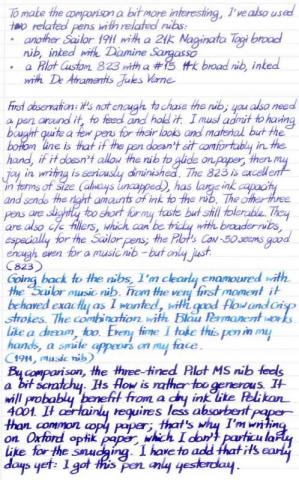 To make the comparison a bit more interesting, I've also used
two related pens with related nibs:
• another Sailor 1911 with a 21K Naginata Togi broad
nib, inked with Diamine Sargasso
• a Pilot Custom 823 with a #15 14k broad nib, inked
with De Atramentis Jules Verne
First observation: it's not enough to chose the nib; you also need
a pen around it, to feed and hold it. I must admit to having
bought quite a few pens for their looks and material but the
bottom line is that if the pen doesn't sit comfortably in the
hand, if it doesn't allow the nib to glide on paper, then my
joy in writing is seriously diminished. The 823 is excellent
in terms of size (always uncapped), has large ink capacity
and sends the right amounts of ink to the nib. The other three
pens are slightly too short for my taste but still tolerable. They
are also c/c fillers, which can be tricky with broader nibs,
especially for the Sailor pens; the Pilot's Con-50 seems good
enough even for a music nib - but only just.
(823)
Going back to the nibs, I'm clearly enamoured with
the Sailor music nib. From the very first moment it
behaved exactly as I wanted, with good flow and crisp
strokes. The combination with Blau Permanent works
like a dream, too. Every time I take this pen in my
hands, a smile appears on my face.
(1911, music nib)
By comparison, the three-tined Pilot MS nib feels
a bit scratchy. Its flow is rather too generous. It
will probably benefit from a dry ink like Pelikan
4001. It certainly requires less absorbent paper
than common copy paper; that's why I'm writing
on Oxford optik paper, which I don't particularly
like for the smudging. I have to add that it's early
days yet: I got this pen only yesterday.